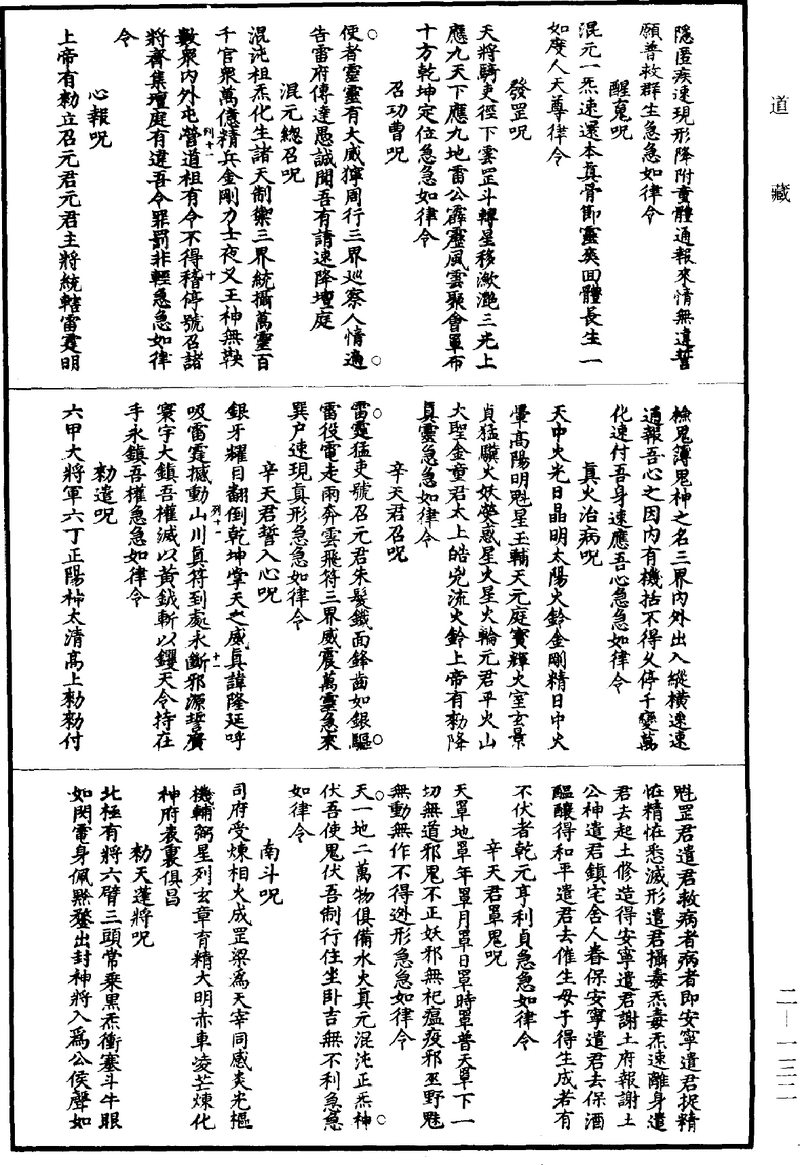 道藏
隱匿疾速現形降附童體通報來情無違誓
願普救群生急急如律令
醒䰟呪
混元一炁速還本真骨節靈爽回體長生一
如度人天尊律令
發罡呪
天將騎吏徑下雲罡斗轉星移激灔三光上
應九天下應九地雷公霹靂風雲聚會罩布
十方乾坤定位急急如律令
召功曹呪
使者靈靈有大威獰周行三界巡察人情通
告雷府傳達愚誠聞吾有請速降壇庭
混元總召呪
混沌祖炁化生諸天制禦三界統攝萬靈百
千官衆萬億精兵金剛力士夜叉王神無鞅
數衆內外屯營道祖有令不得稽停號召諸
將齊集壇庭有違吾令罪罰非輕急急如律
令
心報呪
上帝有勑立召元君元君主將統轄雷霆明
檢鬼簿鬼神之名三界內外出入縱橫速速
通報吾心之因內有機括不得久停千變萬
化速付吾身速應吾心急急如律令
真火治病呪
天中火光日晶明太陽火鈴金剛精日中火
暈高陽明魁星玉輔天元庭寶輝火室玄景
貞猛驥火妖熒惑星火星火輪元君平火山
大聖金童君太上皓兇流火鈴上帝有勑降
真靈急急如律令
辛天君召呪
雷霆猛吏號召元君朱髮鐵面鋒齒如銀驅
雷役電走雨奔雲飛符三界威震萬靈急來
巽戶速現真形急急如律令
辛天君誓入心呪
銀牙耀目翻倒乾坤掌天之威真諱隆延呼
吸雷霆撼動山川真符到處永斷邪源誓廣
寰宇大鎮吾權滅以黃鉞斬以钁天令持在
手永鎮吾權急急如律令
勑遣呪
六甲大將軍六丁正陽神太清高上勑勑付
魁罡君遣君救病者病者即安寧遣君捉精
恠精恠悉滅形遣君攝毒炁毒炁速離身遣
君去起土修造得安寧遣君謝土府報謝土
公神遣君鎮宅舍人眷保安寧遣君去保酒
醖釀得和平遣君去催生母子得生成若有
不伏者乾元亨利貞急急如律令
辛天君罩鬼呪
天罩地罩年罩月罩日罩時罩普天罩下一
切無道邪鬼不正妖邪無祀瘟疫邪巫野魅
無動無作不得迯形急急如律令
天一地二萬物俱備水火真元混沌正炁神
伏吾使鬼伏吾制行住坐卧吉無不利急急
如律令
南斗呪
司府受煉相火成罡梁為天宰同感炎光樞
機輔弼星列玄章育精大明赤車凌芒煉化
神府表裏俱昌
勑天蓬將呪
北極有將六臂三頭常乘黑炁衝塞斗牛眼
如閃電身佩黙鍪出封神將入為公侯聲如
二—一三二